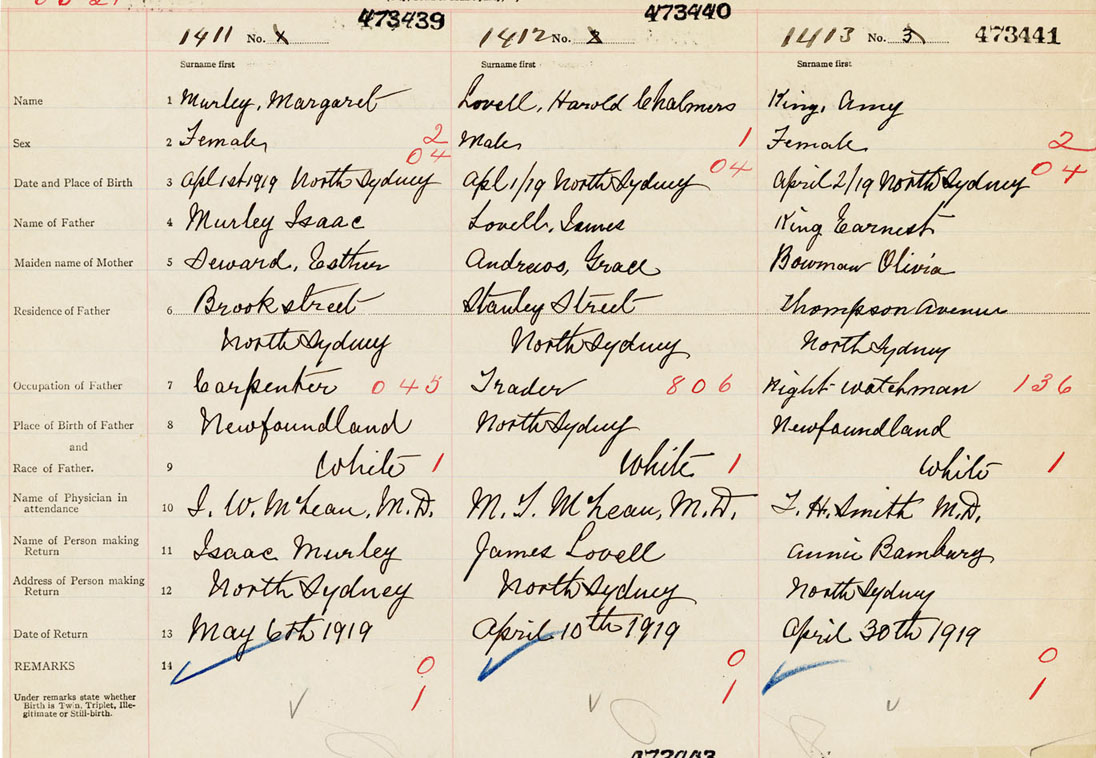 473439 473440
1411 No. 1412 No. 1413 No. 3 473441
Surname first Surname first Surname first
Name 1 Murley, Margaret Lovell, Harold Chalmers King, Amy
Sex 2 Female 2 Male 1 Female 2
04 04 04
Date and Place of Birth 3 Apl 1st 1919 North Sydney Apl 1/19 North Sydney April 2/19 North Sydney
Name of Father 4 Murley Isaac Lovell, James King Earnest
Maiden name of Mother 5 Seward, Esther Andrews, Grace Bowman Olivia
Residence of Father 6 Brook street Stanley Street Thompson Avenue
North Sydney North Sydney North Sydney
Occupation of Father 7 Carpenter 045 Trader 806 Night-watchman 136
Place of Birth of Father 8 Newfoundland North Sydney Newfoundland
and
Race of Father. 9 White 1 White 1 White 1
Name of Physician in
attendance 10 J. W. McLean, M.D. M. T. McLean, M.D. T. H. Smith M.D.
Name of Person making
Return 11 Isaac Murley James Lovell Annie Bambury
Address of Person making
Return 12 North Sydney North Sydney North Sydney
Date of Return 13 May 6th 1919 April 10th 1919 April 30th 1919
REMARKS 14 0 0 0
Under remarks state whether
Birth is Twin, Triplet, Ille-
gitimate or Still-birth.
1 1 1